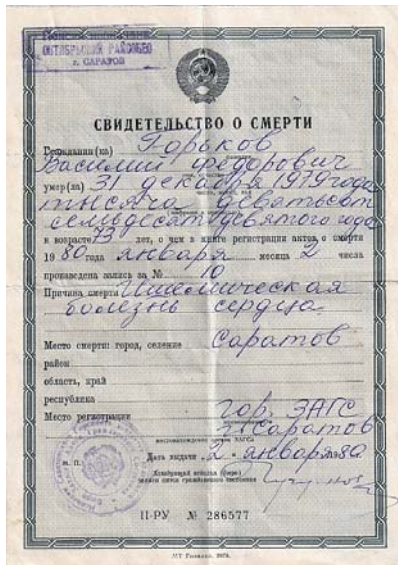 ОКТЯБРЬСКИЙ РАЙСОБЕС
г. САРАТОВ
СВИДЕТЕЛЬСТВО О СМЕРТИ
Гражданин (ка) Горьков
Василий Федорович
умер(ла) 31 декабря 1979 года
тысяча девятьсот
семьдесят девятого года
в возрасте 73 лет, о чем в книге регистрации актов о смерти
19 80 года января месяца 2 числа
произведена запись за № 10
Причина смерти Ишемическая
болезнь сердца
Место смерти: город, селение Саратов
район
область, край
республика
Место регистрации гор. ЗАГС
г. Саратов
наименование органа ЗАГСа
Дата выдачи „2" января 1980
М. П.
Заведующий отделом (бюро)
записи актов гражданского состояния
II-РУ № 286577